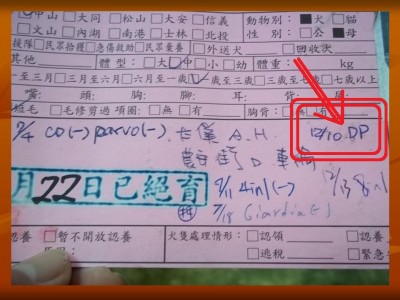 中山 □大同 □松山 □大安 □信義 動物別：■犬 □貓
□文山 □內湖 □南港 □士林 □北投 性 別：□公 ■母
援隊 □民眾拾獲 □急傷救助 □民眾棄養 □外送犬 □回收次
其他 體 型：□大 中 □小 □幼 體 重： kg
至三月 □三月至六月 □六月至一歲 一歲至三歲 □三歲至七歲 □七歲以上
嘴： 頭： 胸： 腳： 耳： 背： 尾：
短毛 □毛修剪過 項圈：□無 □有 胸背：
9/4 CO(-) parvo(-). A.H 12/10 DP
月22日已絕育
9/11 4in1(-) 12/13 8in1
9/18 Giardia(-)
□認養 □暫不開放認養 犬隻處理情形：□認領 □認養
□逃脫 □緊急